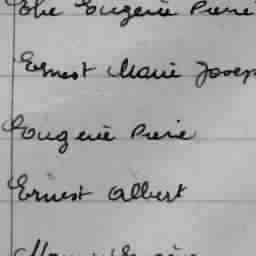 Elie Eugène Pierre
Ernest Marie Joseph
Eugène Pierre
Ernest Albert